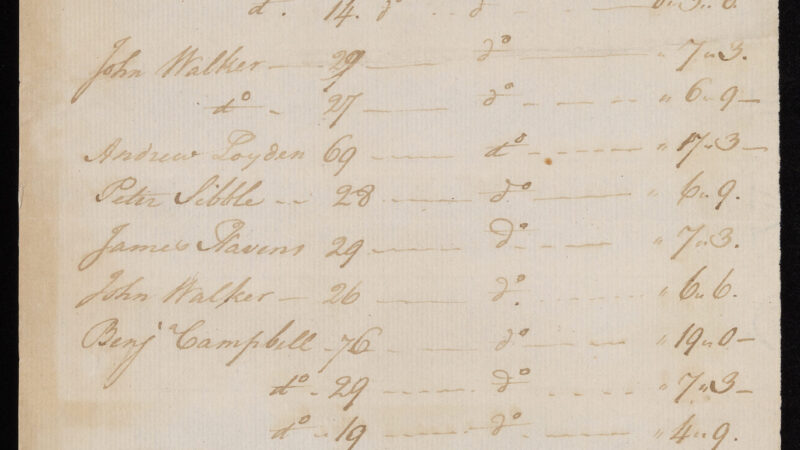 do. 14. do do
John Walker — 29 — do — " 7 " 3.
do - 27 — do - - - " 6 " 9 —
Andrew Loyden 69 — do - - - " 17 " 3 —
Peter Sibble - - 28 — do — " 6 " 9.
James Stavens 29 — do - - - " 7 " 3.
John Walker — 26 — do. - - - " 6 " 6.
Benja Campbell - 76 - — do - - - " 19 " 0 —
do - 29 — do - - - " 7 " 3 —
do - 19 — do - - - " 4 " 9.